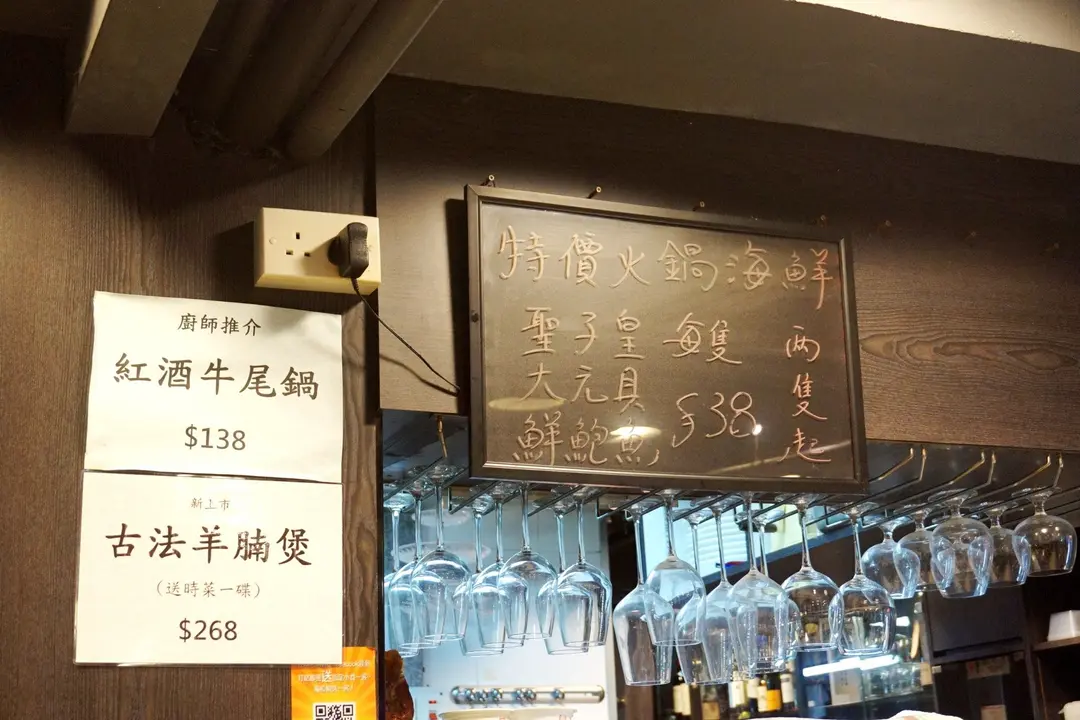 廚師推介
紅酒牛尾鍋
$138
新上市
古法羊腩煲
(送時菜一碟)
$268
特價火鍋海鮮
聖子皇 每隻
大元貝 $38
鮮鮑魚
两隻起